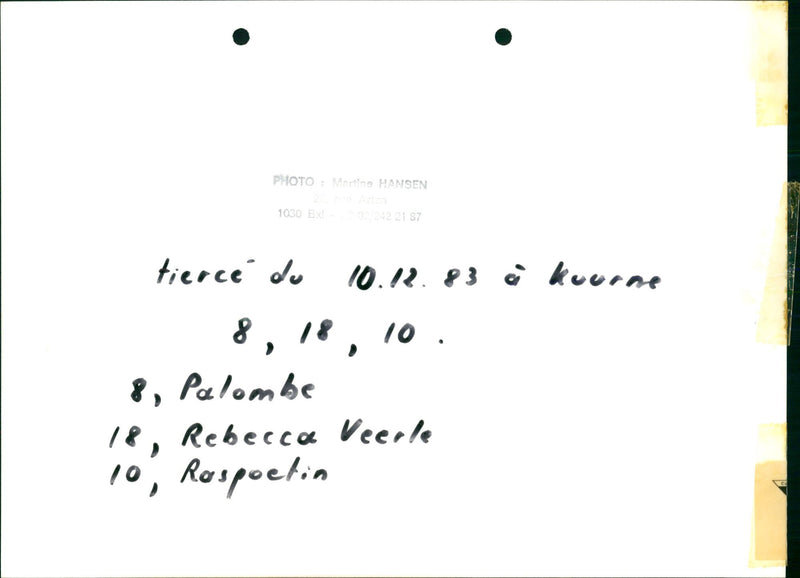 PHOTO : Martine HANSEN
1030 Bxl
tiercé du 10.12.83 à Kuurne
8, 18, 10.
8, Palombe
18, Rebecca Veerle
10, Raspoetin